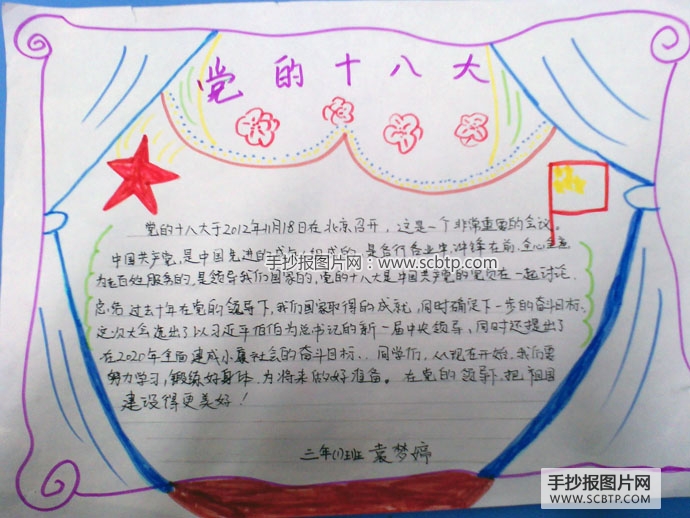 党的十八大
党的十八大于2012年11月18日在北京召开，这是一个非常重要的会议。
中国共产党，是中国先进的成员组成的，是各行各业中冲锋在前，全心全意
手抄报图片网：www.scbtp.com
为老百姓服务的，是领导我们国家的，党的十八大是中国共产党的党员在一起讨论，
总结过去十年在党的领导下，我们国家取得的成就，同时确定下一步的奋斗目标。
这次大会选出了以习近平伯伯为总书记的新一届中央领导，同时还提出了
在2020年全面建成小康社会的奋斗目标。同学们，从现在开始，我们要
努力学习，锻练好身体，为将来做好准备。在党的领导下，把祖国
建设得更美好！
三年(1)班 袁梦婷
手抄报图片网
WWW.SCBTP.COM